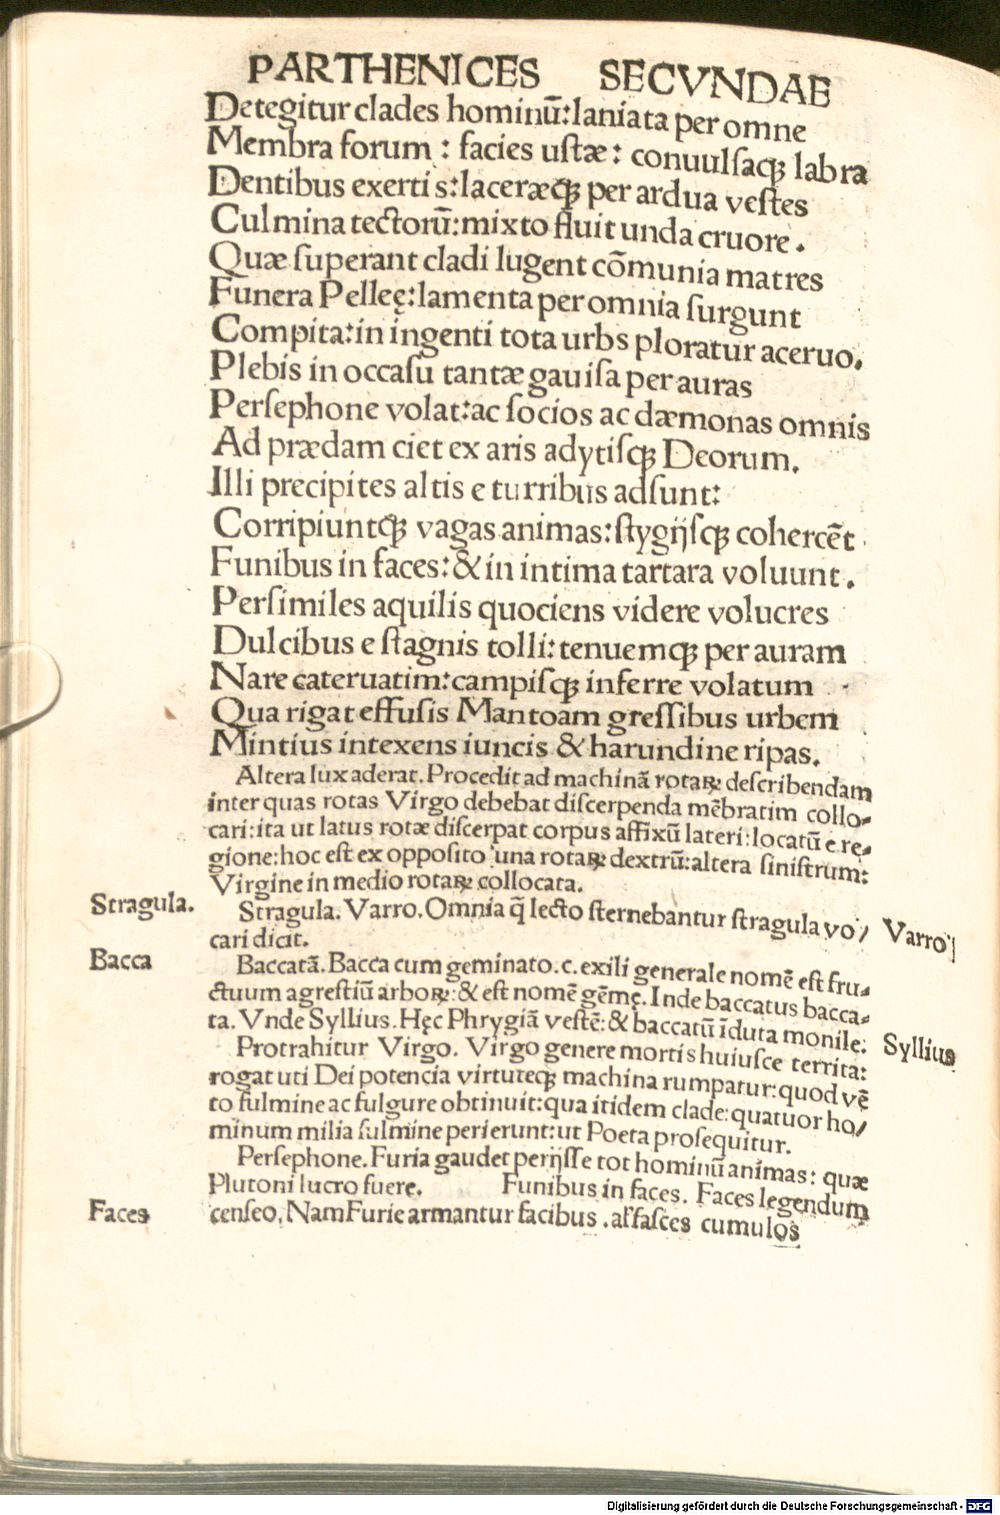 PARTHENICES SECVNDAE
Detegitur clades hominū:laniata per omne
Membra forum : facies ustæ : conuulsaqꝫ labra
Dentibus exertis:laceræqꝫ per ardua vestes
Culmina tectorū:mixto fluit unda cruore.
Quæ superant cladi lugent cōmunia matres
Funera Pelleę:lamenta per omnia surgunt
Compita:in ingenti tota urbs ploratur aceruo.
Plebis in occasu tantæ gauisa per auras
Persephone volat:ac socios ac dæmonas omnis
Ad prædam ciet ex aris adytisqꝫ Deorum.
Illi precipites altis e turribus adsunt:
Corripiuntqꝫ vagas animas:stygijsqꝫ cohercēt.
Funibus in faces:& in intima tartara voluunt.
Persimiles aquilis quociens videre volucres
Dulcibus e stagnis tolli:tenuemqꝫ per auram
Nare cateruatim:campisqꝫ inferre volatum
Qua rigat effusis Mantoam gressibus urbem
Mintius intexens iuncis & harundine ripas.
Altera lux aderat. Procedit ad machinā rotaꝝ describendam
inter quas rotas Virgo debebat discerpenda mēbratim collo-
cari:ita ut latus rotæ discerpat corpus affixū lateri:locatū e re-
gione:hoc est ex opposito una rotaꝝ dextrū:altera sinistrum:
Virgine in medio rotaꝝ collocata.
Stragula. Stragula. Varro. Omnia q̄ lecto sternebantur stragula vo/ Varro
cari dicit.
Bacca Baccatā. Bacca cum geminato .c. exili generale nomē est fru-
ctuum agrestiū arboꝝ:& est nomē gēmę. Inde baccatus bacca-
ta. Vnde Syllius. Hęc Phrygiā vestē:& baccatū īduta monile: Syllius
Protrahitur Virgo. Virgo genere mortis huiusce territa:
rogat uti Dei potencia virtuteqꝫ machina rumpatur:quod vē
to fulmine ac fulgure obtinuit:qua itidem clade:quatuor ho/
minum milia fulmine perierunt:ut Poeta prosequitur.
Persephone. Furia gaudet perijsse tot hominū animas: quæ
Plutoni lucro fuere. Funibus in faces. Faces legendum
Faces censeo. Nam Furie armantur facibus. at fasces cumulos
Digitalisierung gefördert durch die Deutsche Forschungsgemeinschaft - DFG